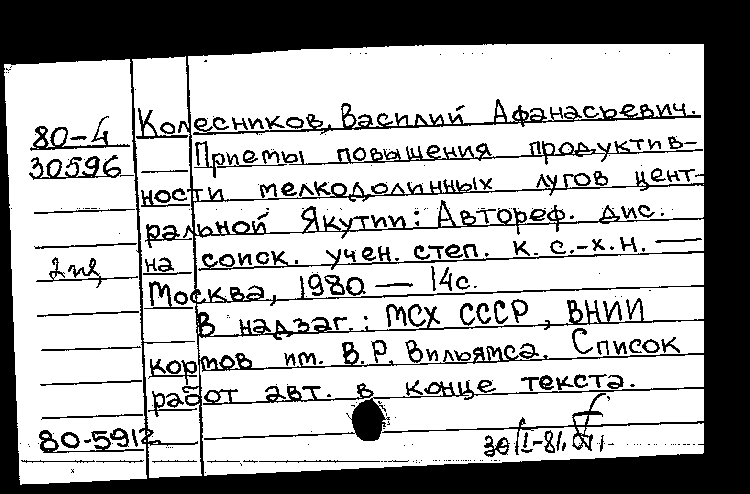 80-4 Колесников, Василий Афанасьевич.
30596 Приемы повышения продуктив-
ности мелкодолинных лугов цент-
ральной Якутии: Автореф. дис.
на соиск. учен. степ. к. с.-х.н. —
Москва, 1980 — 14с.
В надзаг.: МСХ СССР, ВНИИ
кормов им. В.Р. Вильямса. Список
работ авт. в конце текста.
80-5912